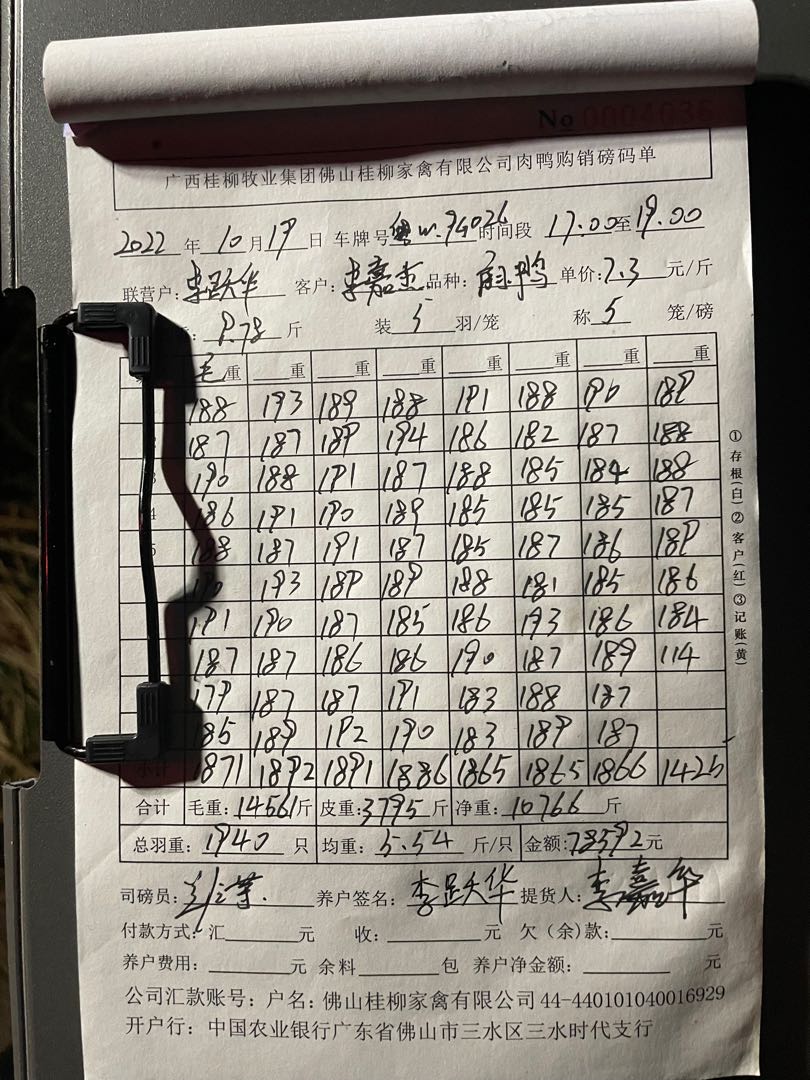 No 0004036
广西桂柳牧业集团佛山桂柳家禽有限公司肉鸭购销磅码单
2022 年 10 月 19 日 车牌号 94026 时间段 17.00 至 19.00
联营户: 李跃华 客户: 李嘉 品种: 鸭 单价: 7.3 元/斤
9.78 斤 装 5 羽/笼 称 5 笼/磅
毛重 重 重 重 重 重 重 重
188 193 189 188 191 188 190 189
187 187 189 194 186 182 187 188
3 190 188 191 187 188 185 184 188
4 186 191 190 189 185 185 185 187
5 188 187 191 187 185 187 186 189
190 193 189 189 188 181 185 186
191 190 187 185 186 193 186 184
187 187 186 186 190 187 189 114
179 187 187 191 183 188 187
185 189 192 190 183 189 187
小计 1871 1892 1891 1886 1865 1865 1866 1425
合计 毛重: 14561 斤 皮重: 3795 斤 净重: 10766 斤
总羽重: 1940 只 均重: 5.54 斤/只 金额: 78592 元
司磅员: 养户签名: 李跃华 提货人: 李嘉华
付款方式: 汇 元 收: 元 欠(余)款: 元
养户费用: 元 余料 包 养户净金额: 元
公司汇款账号: 户名: 佛山桂柳家禽有限公司 44-440101040016929
开户行: 中国农业银行广东省佛山市三水区三水时代支行
①存根(白)②客户(红)③记账(黄)